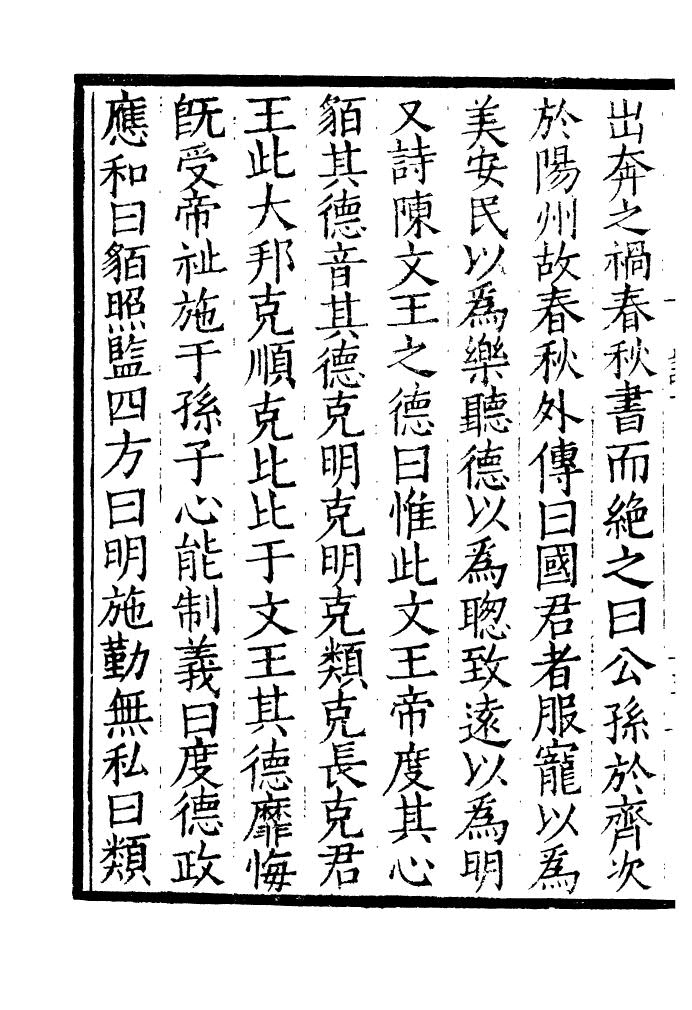 出奔之禍春秋書而絶之曰公孫於齊次
於陽州故春秋外傳曰國君者服寵以爲
美安民以爲樂聽德以爲聰致遠以爲明
又詩陳文王之德曰惟此文王帝度其心
貊其德音其德克明克明克類克長克君
王此大邦克順克比比于文王其德靡悔
旣受帝祉施于孫子心能制義曰度德政
應和曰貊照監四方曰明施勤無私曰類